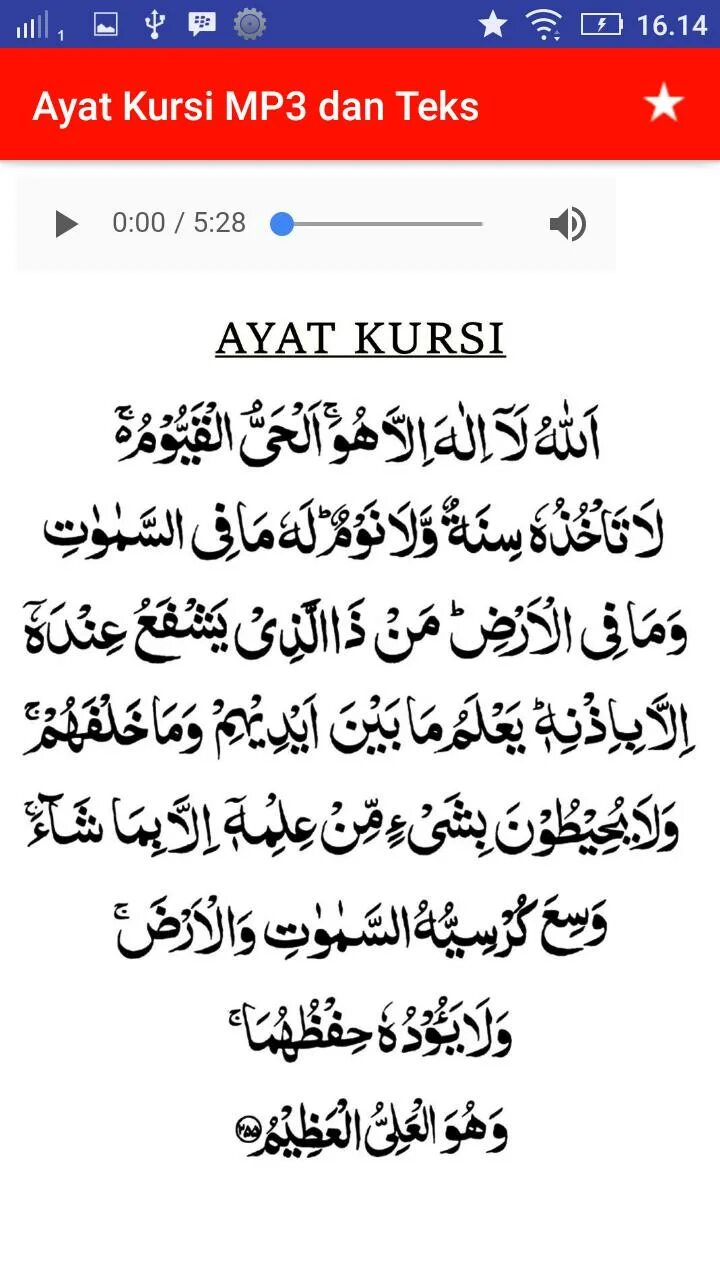 1
16.14
Ayat Kursi MP3 dan Teks
0:00 / 5:28
AYAT KURSI
اَللّٰهُ لَآ اِلٰهَ اِلَّا هُوَۚ اَلْحَيُّ الْقَيُّوْمُ ەۚ
لَا تَأْخُذُهٗ سِنَةٌ وَّلَا نَوْمٌ ؕ لَهٗ مَا فِى السَّمٰوٰتِ
وَمَا فِى الْاَرْضِ ؕ مَنْ ذَا الَّذِىْ يَشْفَعُ عِنْدَهٗٓ
اِلَّا بِاِذْنِهٖ ؕ يَعْلَمُ مَا بَيْنَ اَيْدِيْهِمْ وَمَا خَلْفَهُمْۚ
وَلَا يُحِيْطُوْنَ بِشَىْءٍ مِّنْ عِلْمِهٖٓ اِلَّا بِمَا شَآءَۚ
وَسِعَ كُرْسِيُّهُ السَّمٰوٰتِ وَالْاَرْضَۚ
وَلَا يَـُٔوْدُهٗ حِفْظُهُمَاۚ
وَهُوَ الْعَلِىُّ الْعَظِيْمُ ۝٢٥٥